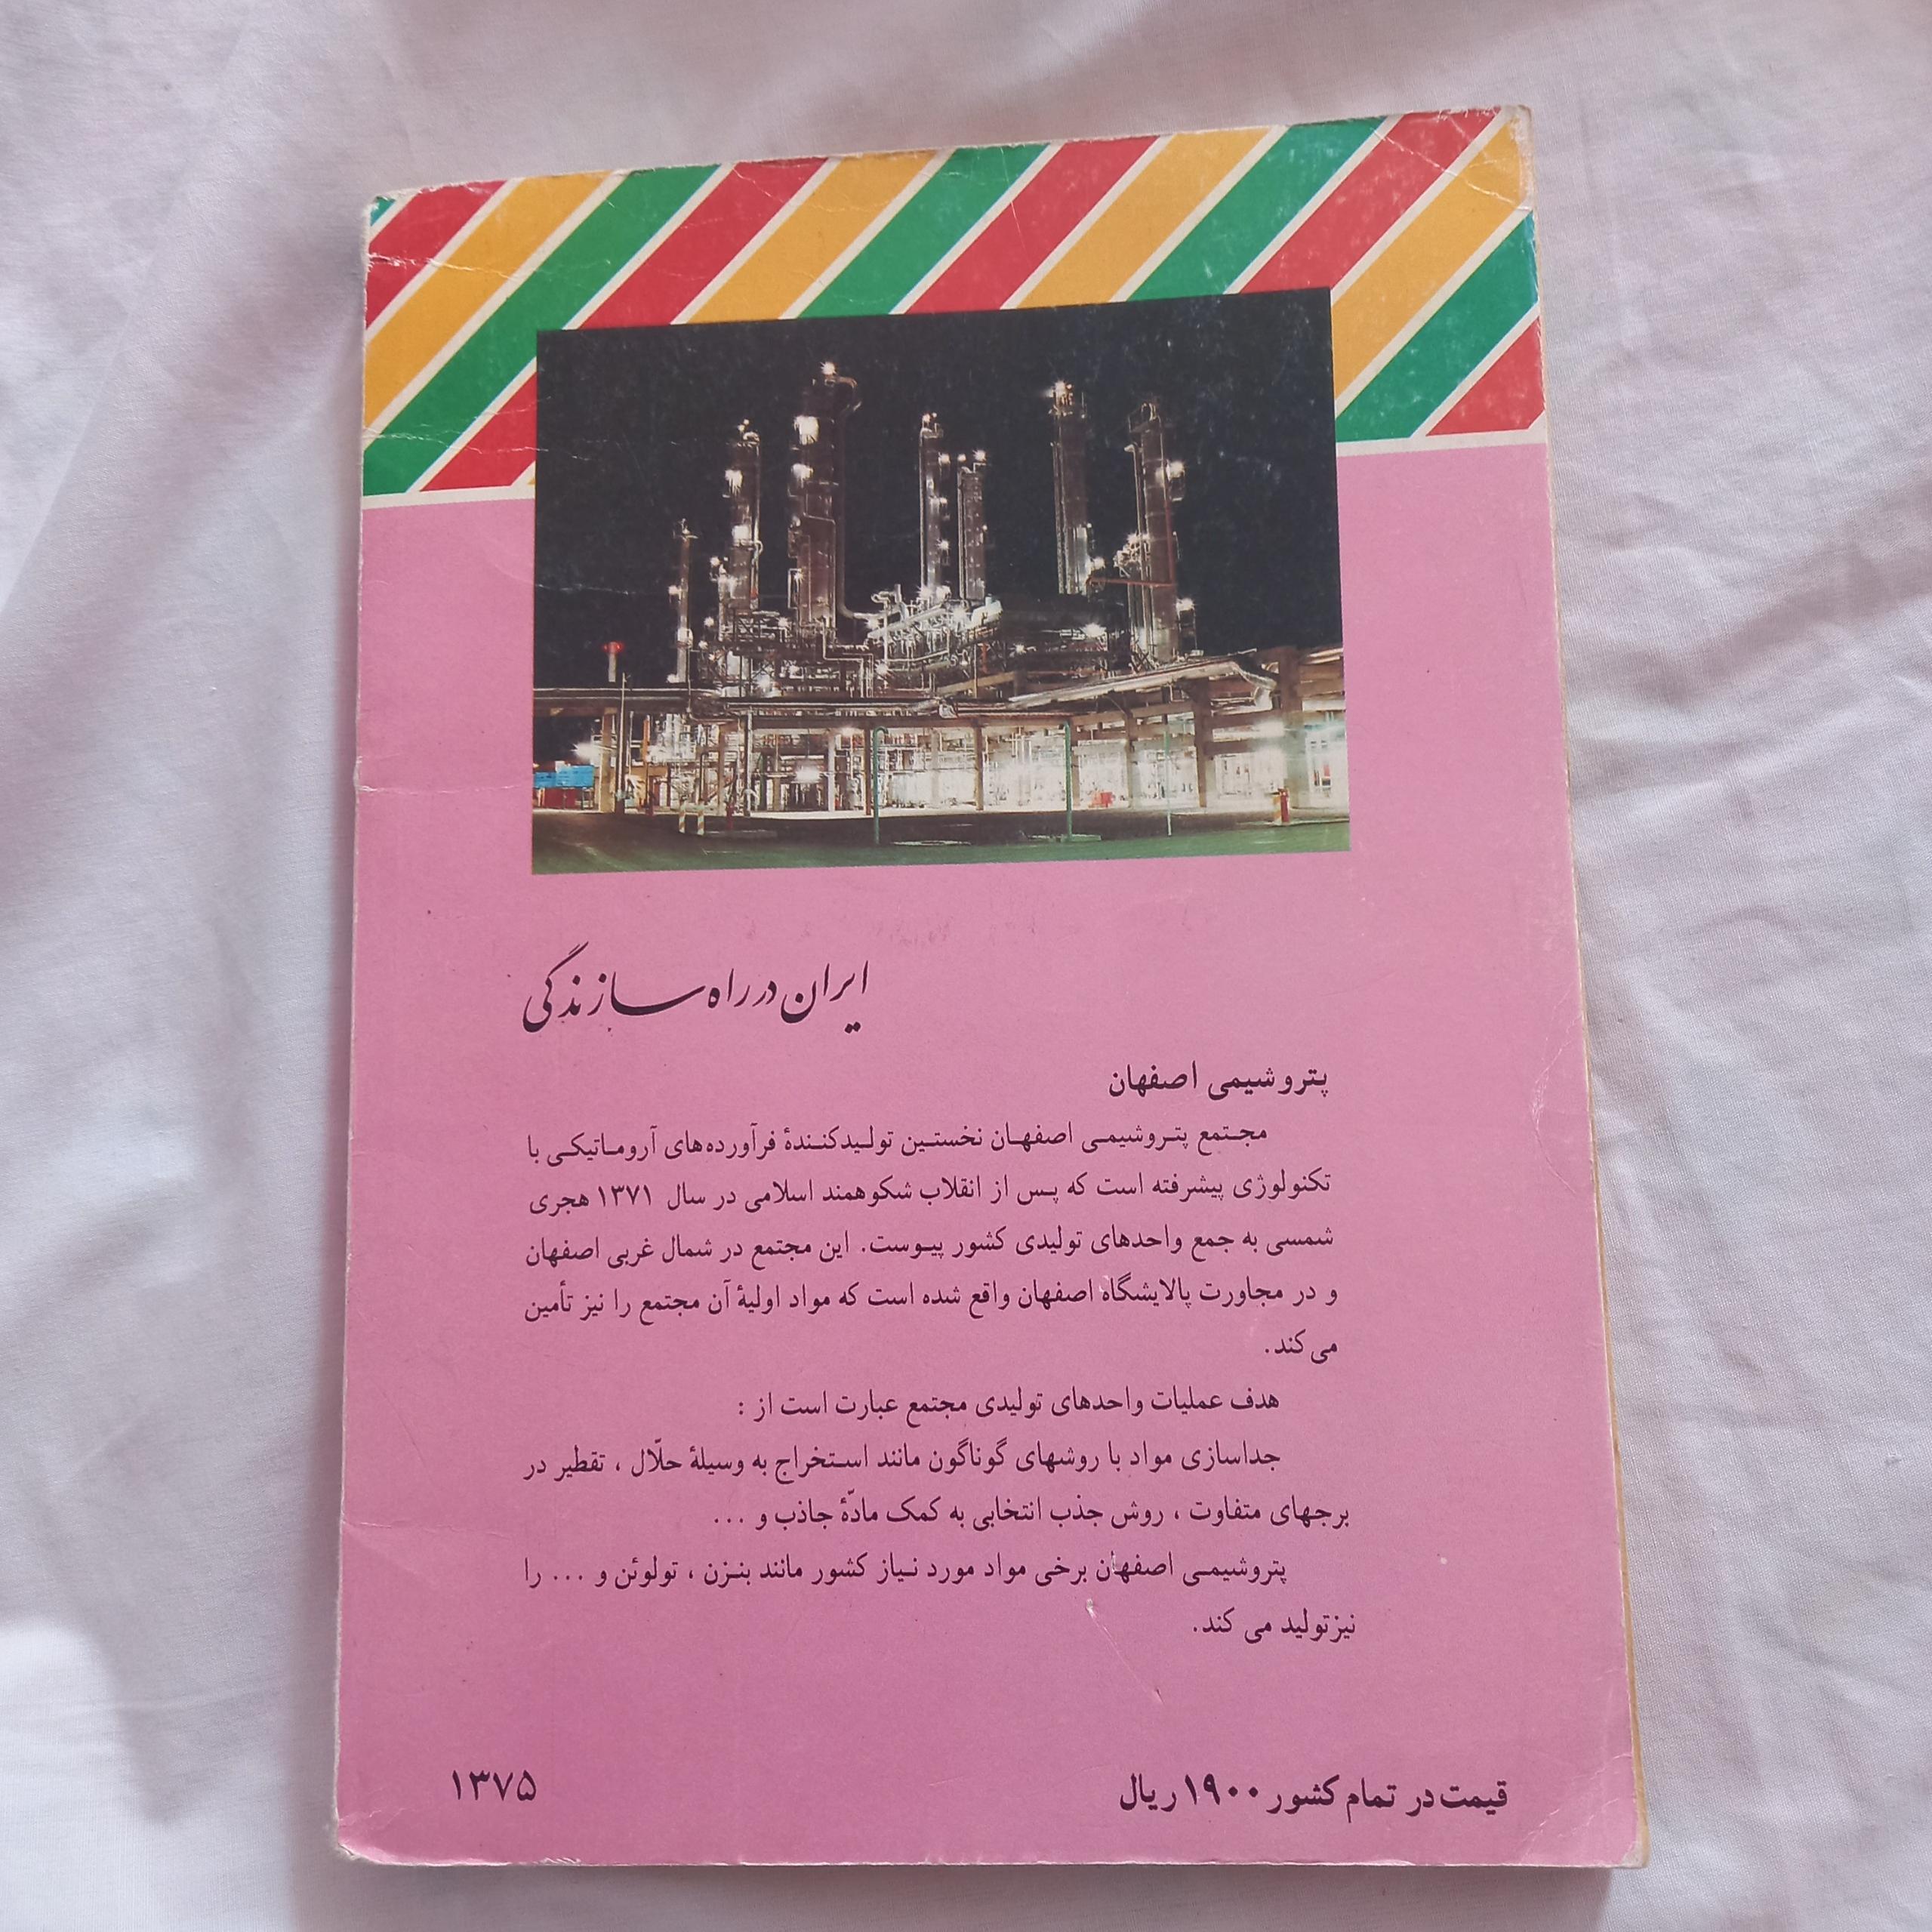 ایران در راه سازندگی
پتروشیمی اصفهان
مجتمع پتروشیمی اصفهان نخستین تولیدکنندهٔ فرآورده‌های آروماتیکی با
تکنولوژی پیشرفته است که پس از انقلاب شکوهمند اسلامی در سال ۱۳۷۱ هجری
شمسی به جمع واحدهای تولیدی کشور پیوست. این مجتمع در شمال غربی اصفهان
و در مجاورت پالایشگاه اصفهان واقع شده است که مواد اولیهٔ آن مجتمع را نیز تأمین
می‌کند.
هدف عملیات واحدهای تولیدی مجتمع عبارت است از :
جداسازی مواد با روشهای گوناگون مانند استخراج به وسیلهٔ حلّال ، تقطیر در
برجهای متفاوت ، روش جذب انتخابی به کمک مادّهٔ جاذب و ...
پتروشیمی اصفهان برخی مواد مورد نیاز کشور مانند بنزن ، تولوئن و ... را
نیز تولید می کند.
قیمت در تمام کشور ۱۹۰۰ ریال
۱۳۷۵